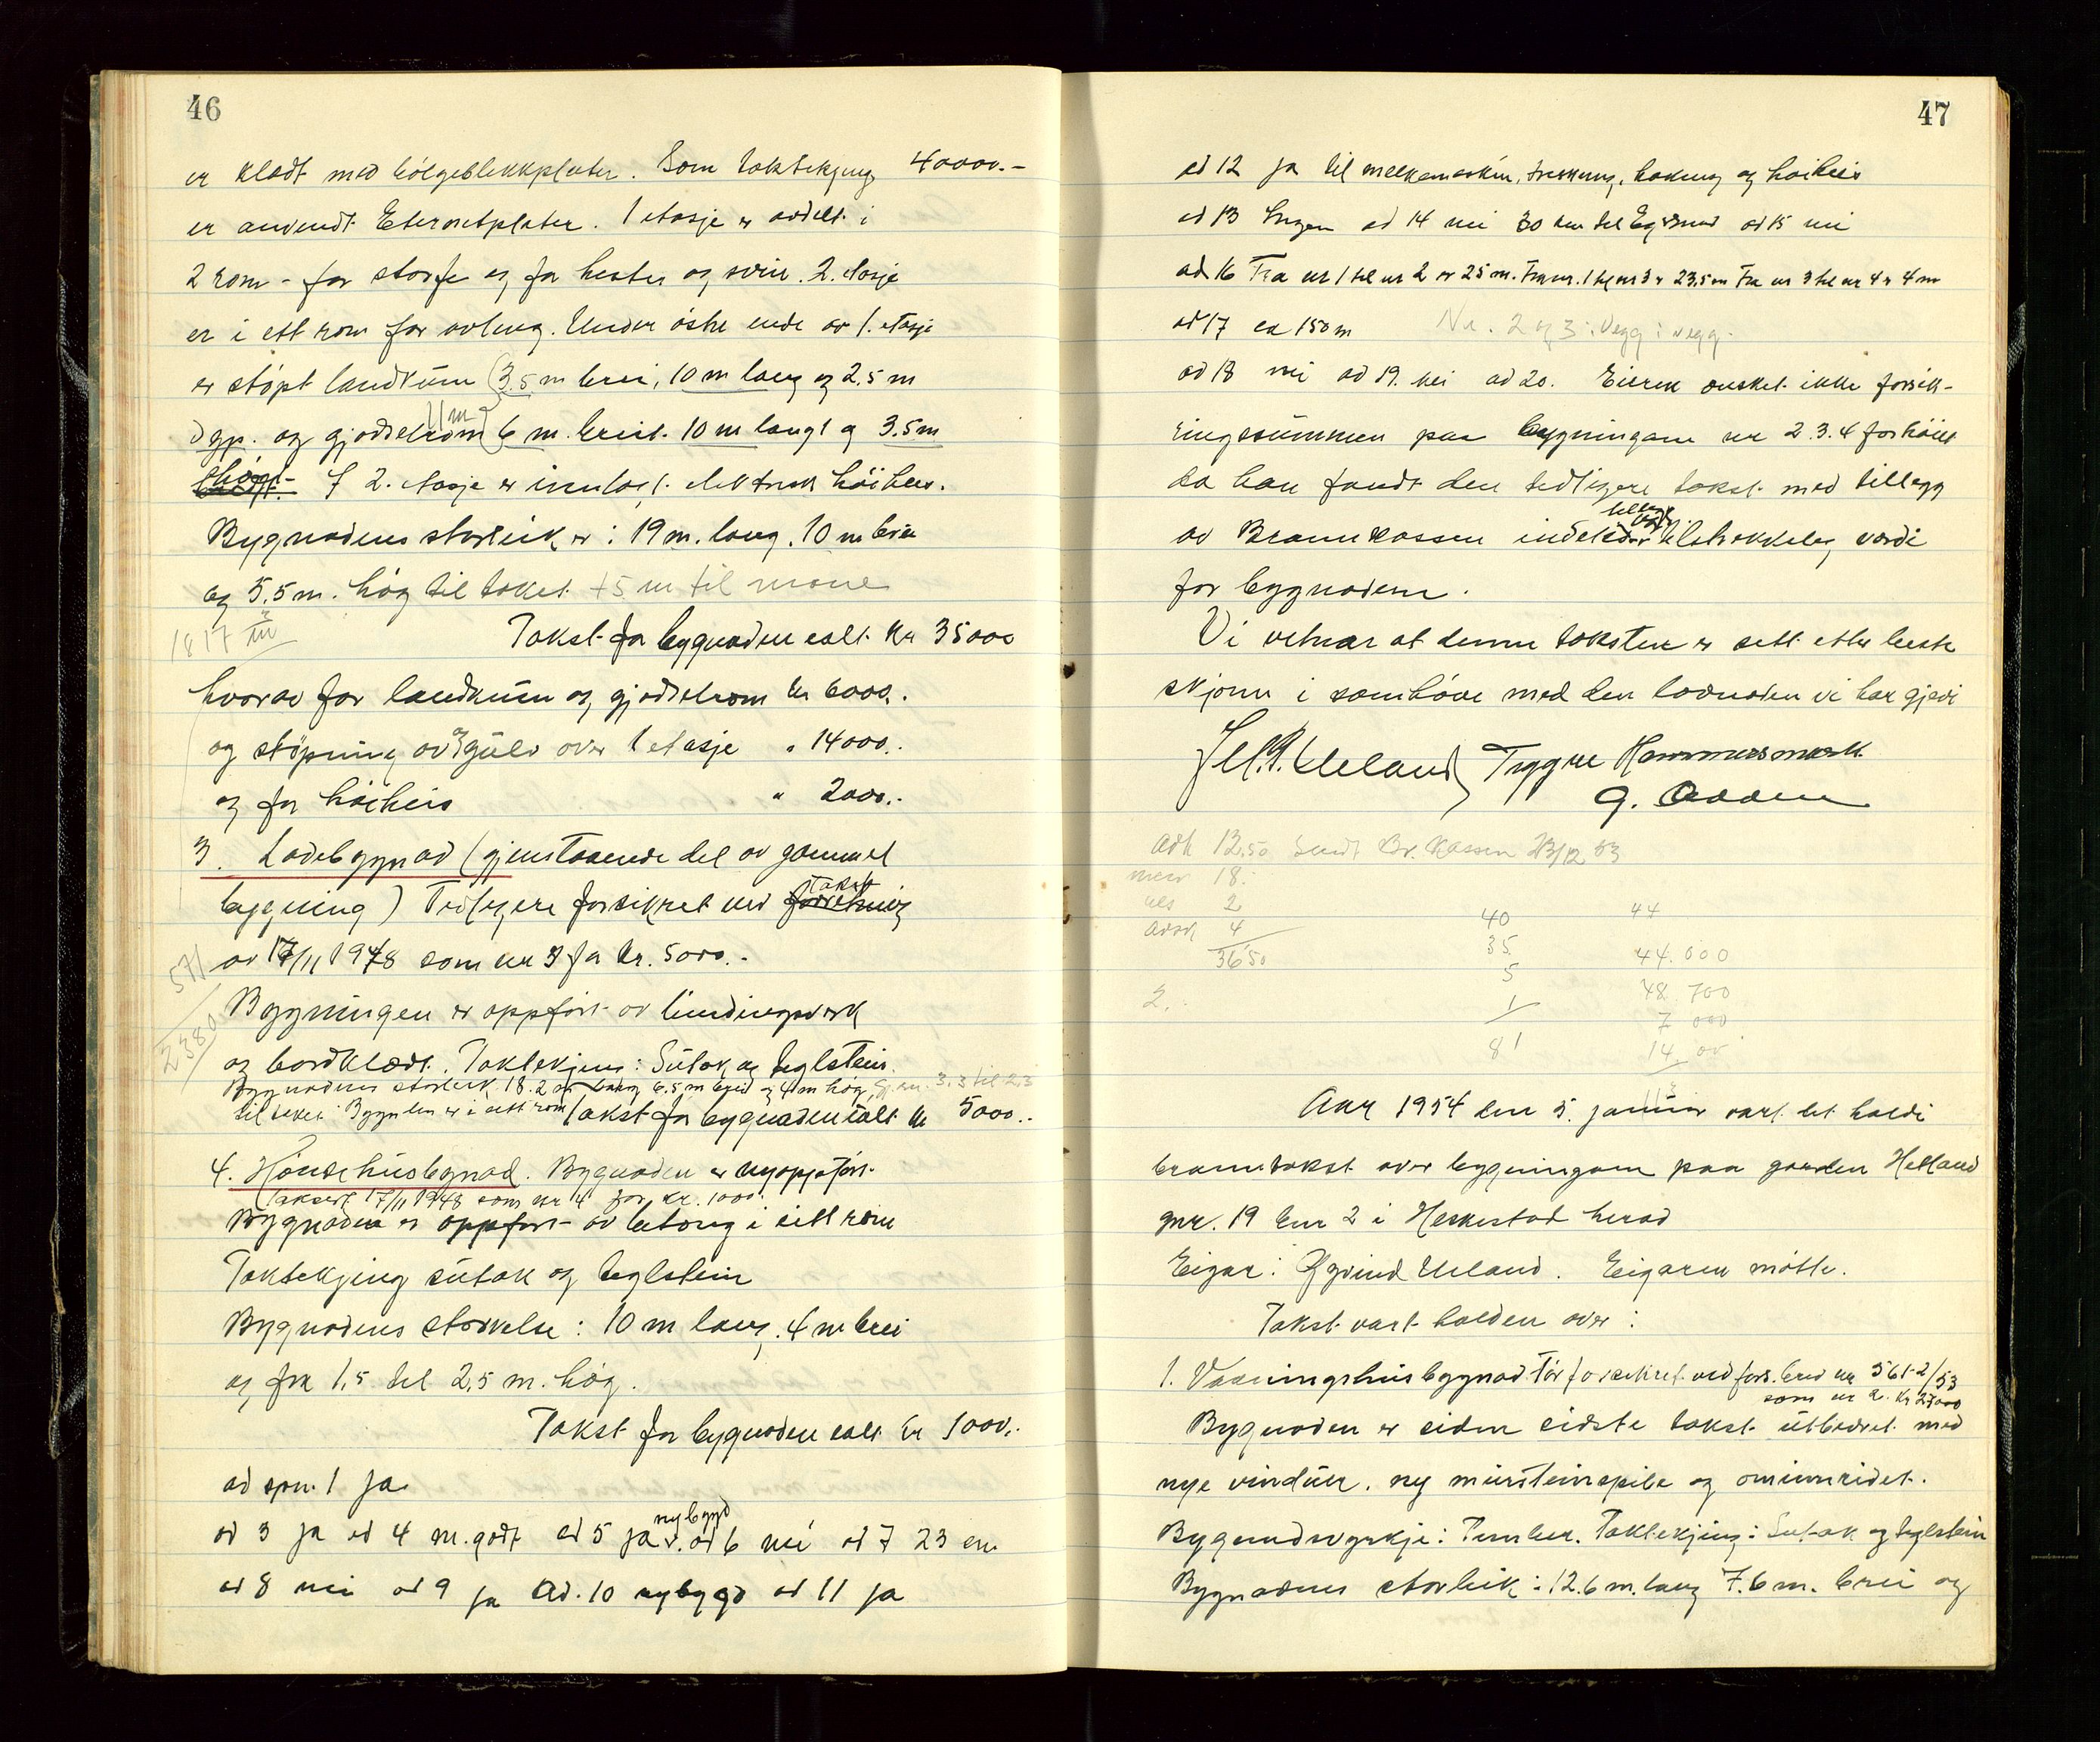 46
er klædt med bölgeblikkplater. Som taktekjing 40000.-
er anvendt Eternitplater. 1 etasje er avdelt i
2 rom - for storfe og for hester og svin. 2. etasje
er i ett rom for avling. Under östre ende av 1. etasje
er stöpt landkum (3,5 m brei, 10 m lang og 2,5 m
dyp. og gjödselrom 6 m. breit. 10 m langt og 3.5 m
11 m
högt- I 2. etasje er innlagt elektrisk höiheis.
Bygnadens storleik er: 19 m. lang. 10 m brei
og 5,5 m. hög til taket +5 m til möne
1817 m³
Takst for bygnaden ialt kr 35000
hvorav for landkum og gjödselrom kr 6000.-
og stöping av gulv over 1 etasje " 14000.-
og for höiheis " 2000.-
3. Ladebygnad (gjenstaaende del av gammel
bygning) Tidligere forsikret ved takst
av 17/11 1948 som nr 3 for kr. 5000.-
571
2380
Bygningen er oppfört av bindingsverk
og bordklædt. Taktekjing: Sutak og teglstein.
Bygnadens storleik 18.2 m lang 6.5 m breid og 4 m hög. Gj.sn. 3,3 til 2,3
til taket. Bygnaden er i eitt rom Takst for bygnaden ialt kr 5000.-
4. Hönsehusbygnad. Bygnaden er nyoppfört.
Taksert 17/11 1948 som nr 4 for kr. 1000.
Bygnaden er oppfört av betong i eitt rom
Taktekjing sutak og teglstein
Bygnadens störrelse: 10 m lang, 4 m brei
og fra 1,5 til 2,5 m. hög.
Takst for bygnaden ialt kr 1000.-
ad spm. 1 ja
nybygd
ad 3 ja ad 4 m. godt ad 5 ja ad 6 nei ad 7 23 cm
ad 8 nei ad 9 ja ad. 10 nybygd ad 11 ja
47
ad 12 ja til melkemaskin, treskung, koking og höiheis
ad 13 Ingen ad 14 nei 30 km til Egersund ad 15 nei
ad 16 Fra nr 1 til nr 2 er 25 m. Fra nr. 1 til nr 3 er 23,5 m Fra nr 3 til nr 4 er 4 m
ad 17 ca 150 m Nr. 2 og 3: Vegg i vegg.
ad 18 nei ad 19. nei ad 20. Eieren önsket ikke forsik-
ringssummen paa bygningane nr 2.3.4 forhöiet
da han fandt den tidligere takst med tillegg
av Brannkassen tilstrekkeleg verdi
for bygnadene.
Vi vitnar at denne taksten er sett etter beste
skjönn i samhöve med den lovnaden vi har gjevi
M. P. Ueland Trygve Hammersmark
G. Odden
adh 12.50 Sendt Br. Kassen 23/12 53
18.
2
4
36 50
2.
40
35
5
1
81
44
44.000
48 700
7 000
14.00
Aar 1954 den 5. januar vart det haldi
branntakst over bygningane paa garden Helland
gnr. 19 bnr 2 i Heskestad herad
Eigar: Öyvind Ueland. Eigaren mötte.
Takst vart halden over:
1. Vaaningshusbygnad För forsikret ved fors. brev nr 561-2/53
som nr 2. Kr 27000
Bygnaden er siden sidste takst utbedret med
nye vinduer. ny mursteinspibe og ominnridet.
Bygnadsvyrkje: Timber. Taktekjing: Sutak og teglstein
Bygnadens storleik: 12.6 m. lang 7.6 m. brei og